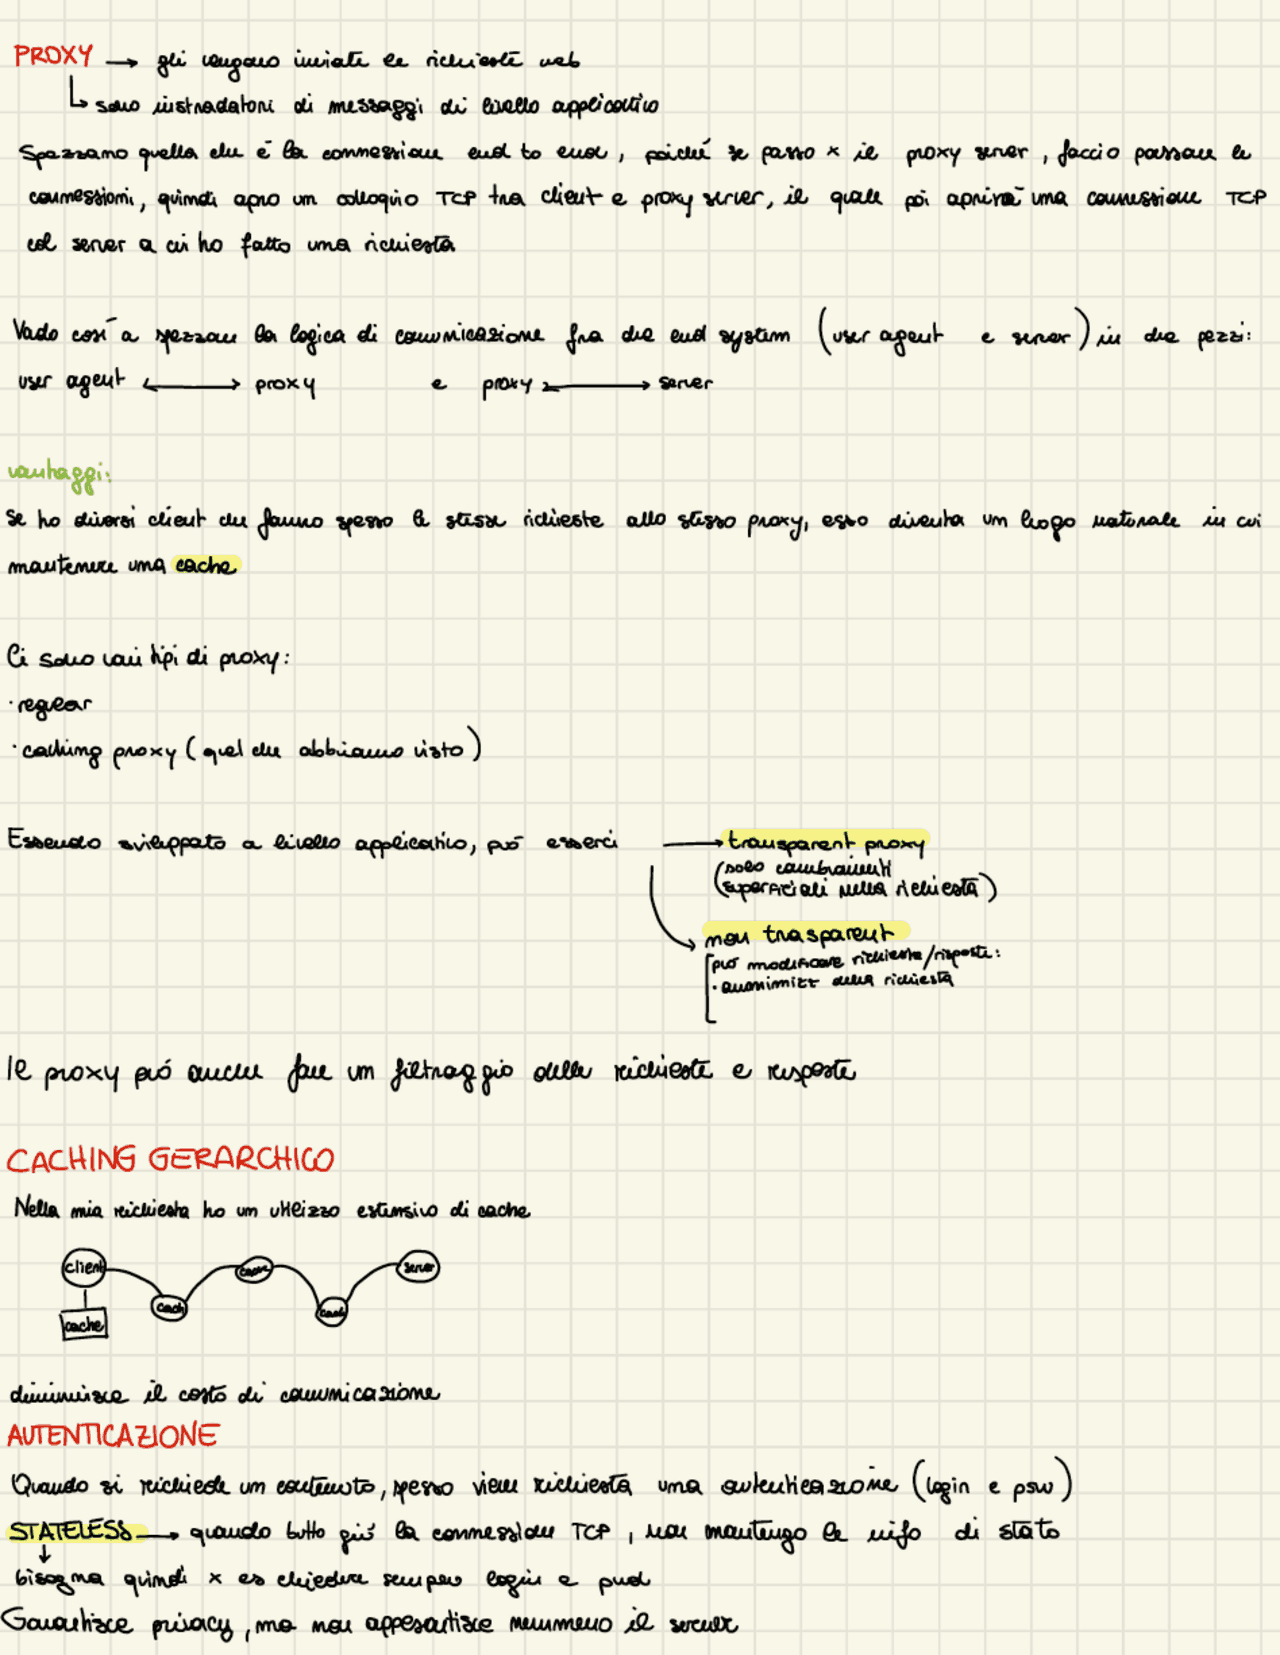 PROXY → gli vengono inviate le richieste web
↳ sono instradatori di messaggi di livello applicativo
Spezzano quella che è la connessione end to end, poiché se passo x il proxy server, faccio passare le
connessioni, quindi apro un colloquio TCP tra client e proxy server, il quale poi aprirà una connessione TCP
col server a cui ho fatto una richiesta
Vado così a spezzare la logica di comunicazione fra due end system (user agent e server) in due pezzi:
user agent ⟷ proxy e proxy ⟷ server
vantaggi:
Se ho diversi client che fanno spesso le stesse richieste allo stesso proxy, esso diventa un luogo naturale in cui
mantenere una cache
Ci sono vari tipi di proxy:
· regular
· caching proxy (quel che abbiamo visto)
Essendo sviluppato a livello applicativo, può esserci → transparent proxy
(solo cambiamenti
superficiali nella richiesta)
non trasparent
può modificare richieste/risposte:
· anonimizz della richiesta
Il proxy può anche fare un filtraggio delle richieste e risposte
CACHING GERARCHICO
Nella mia richiesta ho un utilizzo estensivo di cache
client cache server
cach cach
cache
diminuisce il costo di comunicazione
AUTENTICAZIONE
Quando si richiede un contenuto, spesso viene richiesta una autenticazione (login e psw)
STATELESS → quando butto giù la connessione TCP, non mantengo le info di stato
↓
bisogna quindi x es chiedere sempre login e pwd
Garantisce privacy, ma non appesantisce nemmeno il server